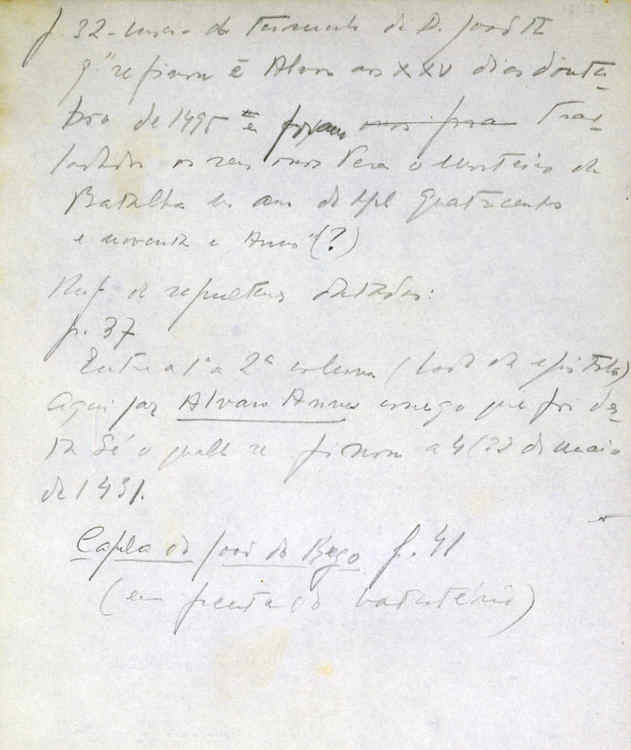 f. 32 - do de D. João II
q" se finou ē Alvor aos XXV dias doutu-
bro de 1495 e foram ossos pera tras-
ladados os seus ossos pera o Mosteiro da
Batalha ano de Mil Quatrocentos
e noventa e Anos" (?)
de sepulturas datadas:
f. 37
Entre a 1ª a 2ª coluna (lado da epistola)
Aqui jaz Alvaro Annes conego que foi des-
ta Sé o quall se finou a 4/22 de maio
de 1431.
Capela de João do Rego f. 41
(em frente ao batistério)